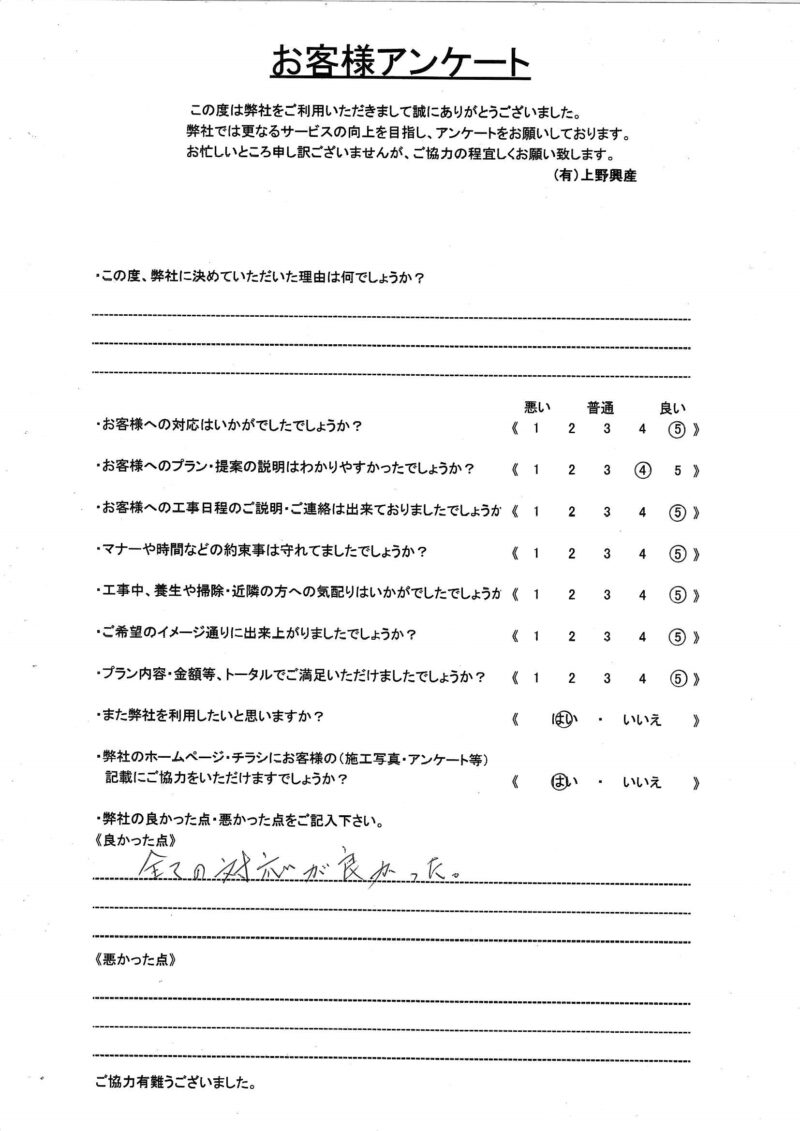 お客様アンケート
この度は弊社をご利用いただきまして誠にありがとうございました。
弊社では更なるサービスの向上を目指し、アンケートをお願いしております。
お忙しいところ申し訳ございませんが、ご協力の程宜しくお願い致します。
(有)上野興産
・この度、弊社に決めていただいた理由は何でしょうか？
悪い 普通 良い
・お客様への対応はいかがでしたでしょうか？ 《 1 2 3 4 ⑤ 》
・お客様へのプラン・提案の説明はわかりやすかったでしょうか？ 《 1 2 3 ④ 5 》
・お客様への工事日程のご説明・ご連絡は出来ておりましたでしょうか 《 1 2 3 4 ⑤ 》
・マナーや時間などの約束事は守れてましたでしょうか？ 《 1 2 3 4 ⑤ 》
・工事中、養生や掃除・近隣の方への気配りはいかがでしたでしょうか 《 1 2 3 4 ⑤ 》
・ご希望のイメージ通りに出来上がりましたでしょうか？ 《 1 2 3 4 ⑤ 》
・プラン内容・金額等、トータルでご満足いただけましたでしょうか？ 《 1 2 3 4 ⑤ 》
・また弊社を利用したいと思いますか？ 《 はい ・ いいえ 》
・弊社のホームページ・チラシにお客様の（施工写真・アンケート等）
記載にご協力をいただけますでしょうか？ 《 はい ・ いいえ 》
・弊社の良かった点・悪かった点をご記入下さい。
《良かった点》
全ての対応が良かった。
《悪かった点》
ご協力有難うございました。